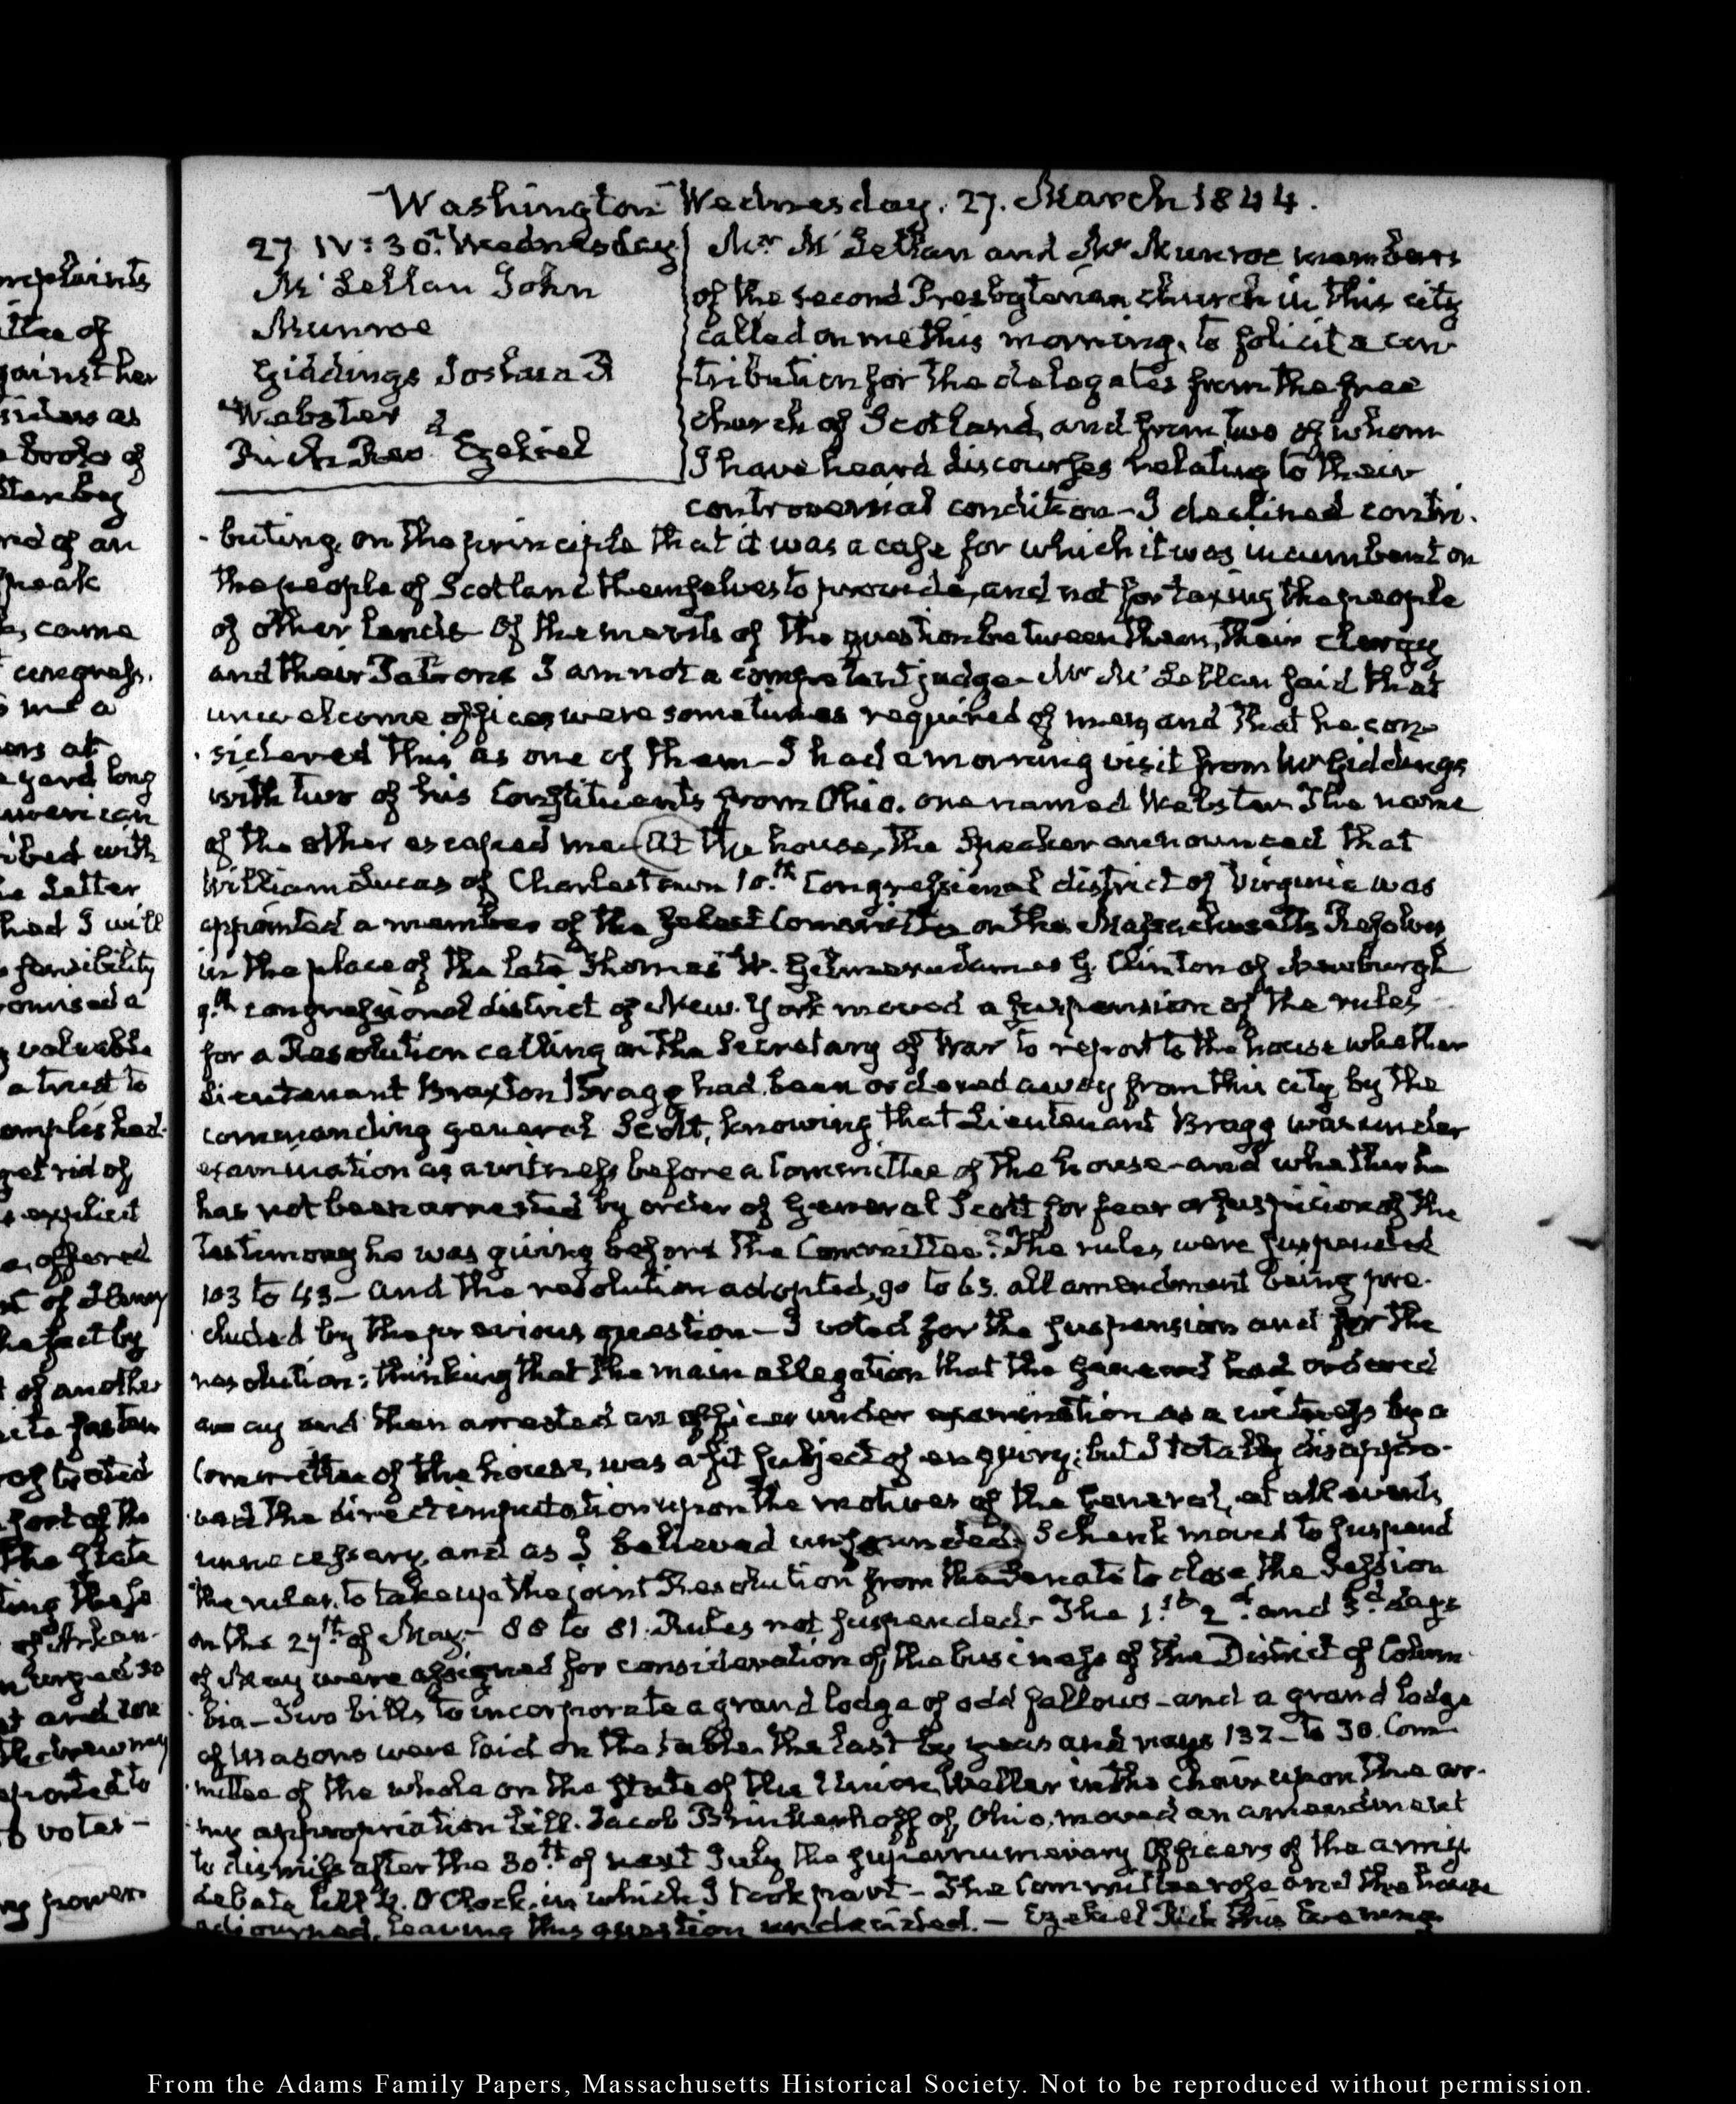 Washington Wednesday. 27. March 1844.
27 IV:30. Wednesday
Mc'Lellan John
Munroe
Giddings Joshua R
Webster
Rich Rev.d Ezekiel
Mr. Mc'Lellan and Mr Munroe members
of the second Presbyterian church in this city
called on me this morning, to solicit a con-
tribution for the delegates from the free
church of Scotland, and from two of whom
I have heard discourses relating to their
controversial condition— I declined contri-
buting, on the principle that it was a case for which it was incumbent on
the people of Scotland themselves to provide, and not for taxing the people
of other lands— Of the merits of the question between them, their clergy
and their Patrons I am not a competent judge— Mr Mc'Lellan said that
unwelcome offices were sometimes required of men, and that he con-
sidered this as one of them— I had a morning visit from Mr Giddings
with two of his Constituents from Ohio. one named Webster The name
of the other escaped me— At the house, the Speaker announced that
William Lucas of Charlestown 10.th Congressional district of Virginia was
appointed a member of the Select Committee on the Massachusetts Resolves
in the place of the late Thomas W. Gilmer. James G. Clinton of Newburgh
9.th congressional district of New-York moved a suspension of the rules
for a Resolution calling on the Secretary of War to report to the house whether
Lieutenant Braxton Bragg had been ordered away from this city by the
commanding general Scott, knowing that Lieutenant Bragg was under
examination as a witness before a Committee of the house— and whether he
has not been arrested by order of General Scott for fear or suspicion of the
testimony he was giving before the Committee? The rules were suspended
103 to 43— and the resolution adopted, 90 to 63. all amendment being pre-
cluded by the previous question— I voted for the suspension and for the
resolution; thinking that the main allegation that the general had ordered
away and then arrested an officer under examination as a witness by a
Committee of the house, was a fit subject of enquiry; but I totally disappro-
ved the direct imputation upon the motives of the General, at all events
unnecessary, and as I believed unfounded. Schenk moved to suspend
the rules, to take up the joint Resolution from the Senate to close the Session
on the 27th of May— 88 to 81. Rules not suspended— The 1.st 2.d and 3.d days
of May were assigned for consideration of the business of the District of Colum-
bia— Two bills to incorporate a grand lodge of odd fellows— and a grand lodge
of Masons were laid on the table. The last by yeas and nays 132— to 30. Com-
mittee of the whole on the state of the Union, Weller in the chair upon the ar-
my appropriation bill. Jacob Brinkerhoff of Ohio, moved an amendment
to dismiss after the 30th of next July the supernumerary Officers of the army
debate till O'Clock, in which I took part— The Committee rose and the house
adjourned, leaving this question undecided.— Ezekiel Rich this Evening
mplaints
ittee of
gainst her
siders as
books of
rid of an
speak
came
congress.
me a
ers at
yard long
merican
ibed with
Letter
had I will
sensibility
romised a
valuable
a trust to
omplished.
get rid of
explicit
offered
of Henry
he fact by
of another
to fasten
The State
ting these
of Arkan-
votes—
power
From the Adams Family Papers, Massachusetts Historical Society. Not to be reproduced without permission.